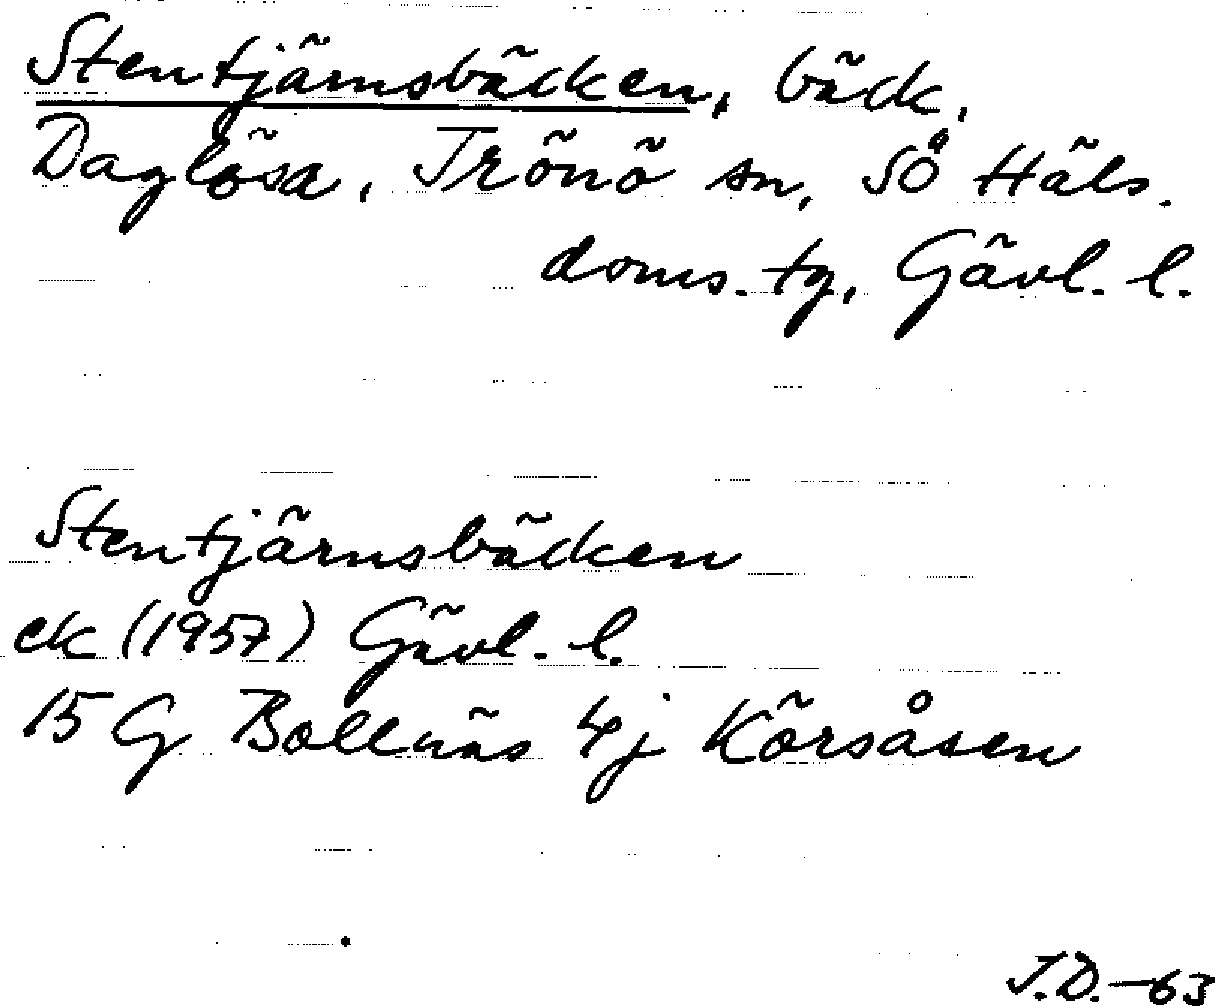 Stentjärnsbäcken, bäck,
Daglösa, Trönö sn, SÖ Häls.
doms. tg, Gävl. l.
Stentjärnsbäcken
ek (1957) Gävl. l.
15 G Bollnäs 4j Körsåsen
J.D. -63